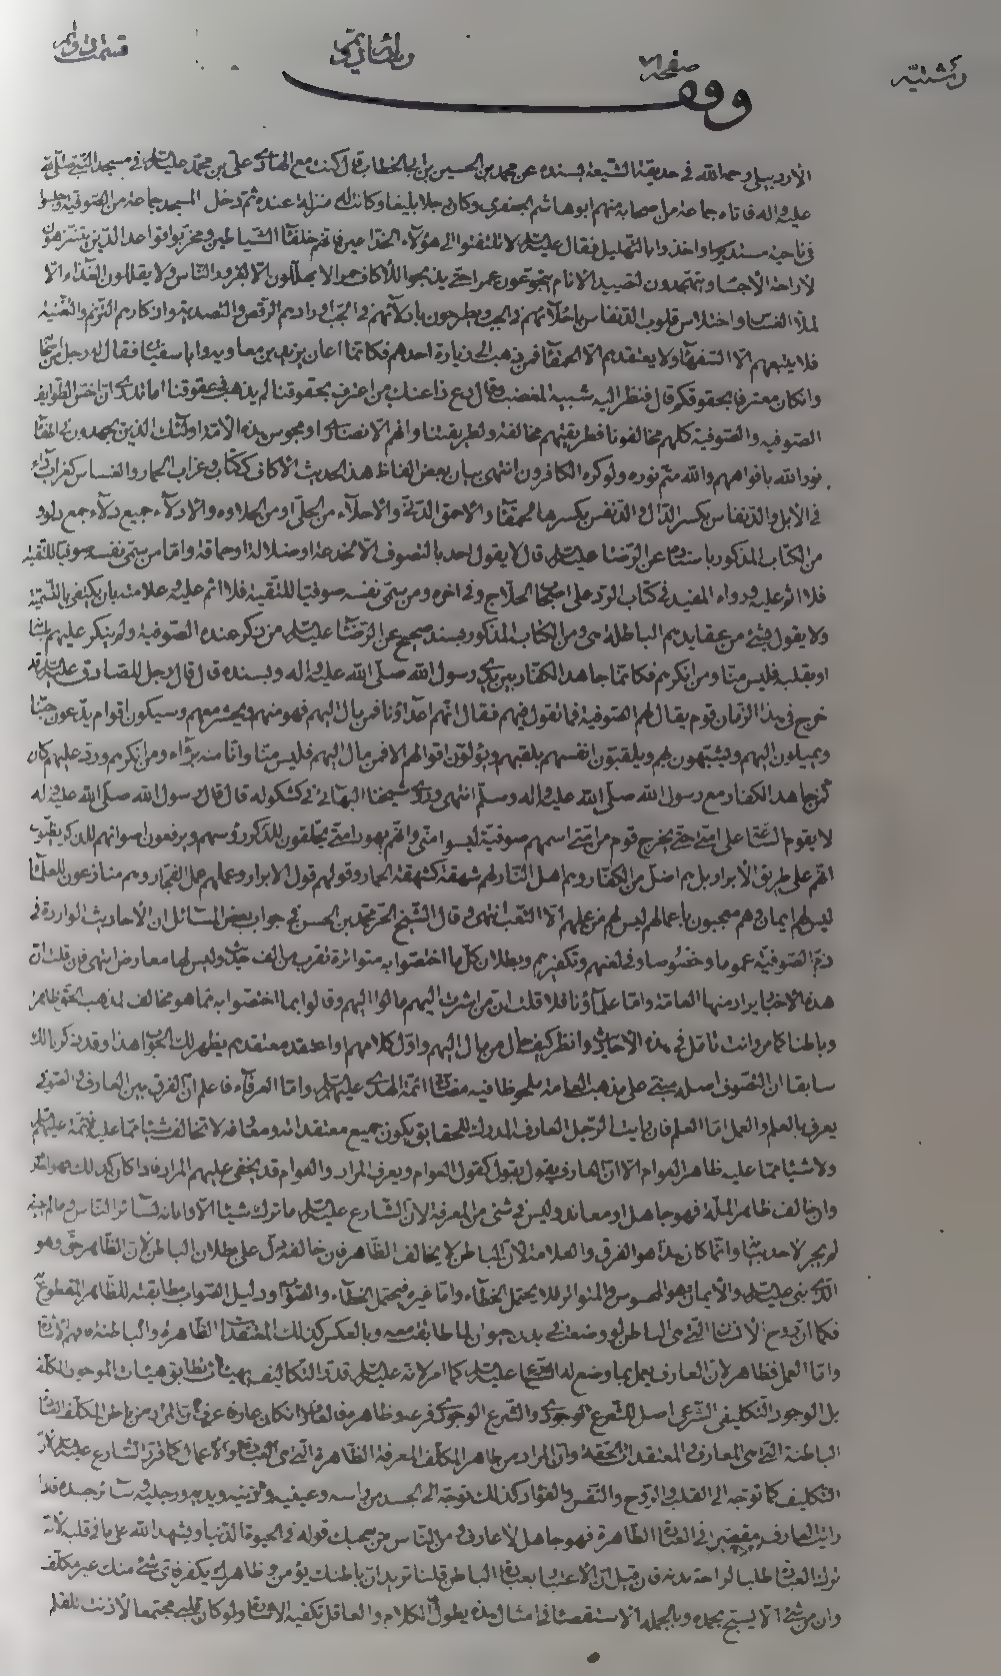 وقف
الأردبيلي رحمه الله في حديقة الشيعة بسنده عن محمد بن الحسين بن ابي الخطاب قال كنت مع الهادي علي بن محمد عليه السلام في مسجد النبي صلى الله
عليه واله فاتاه جماعة من اصحابه منهم ابو هاشم الجعفري وكان رجلا بليغا وكانت له منزلة عنده ثم دخل المسجد جماعة من الصوفية وجلسوا
في ناحية مستديرا واخذوا بالتهليل فقال عليه السلام لا تلتفتوا الى هؤلاء الخداعين فانهم خلفاء الشياطين ومخربوا قواعد الدين يتزهدون
لاراحة الأجسام ويتهجدون لتصييد الانام يتجوعون عمرا حتى يذبحوا للاكاف حمرا لا يهللون الا لغرور الناس ولا يقللون الغذاء الا
لملأ العساس واختلاس قلوب الدنفاس باحلائهم في الحب ويطرحون بادلائهم في الجب اورادهم الرقص والتصدية واذكارهم الترنم والتغنية
فلا يتبعهم الا السفهاء ولا يعتقدهم الا الحمقاء فمن ذهب الى زيارة احدهم فكانما اعان يزيد بن معاوية وابا سفيان فقال له رجل من اصحابه
وان كان معترفا بحقوقكم قال فنظر اليه شبيه المغضب وقال دع ذا عنك من اعترف بحقوقنا لم يذهب في عقوقنا اما تدري ان اخس الطوايف
الصوفيه والصوفية كلهم مخالفونا فطريقتهم مخالفة لطريقتنا وانهم الا نصارى او مجوس هذه الامة اولئك الذين يجهدون في اطفاء
نور الله بافواههم والله متم نوره ولو كره الكافرون انتهى بيان بعض الفاظ هذا الحديث الأكاف ككتاب وغراب الحمار والعساس
في الأبل والدنفاس بكسر الدال والدنفس بكسرها الحمقاء والاحمق الدني والأحلاء من الحلي او من الحلاوه والأدلاء جميع دلاء جمع دلو
من الكتاب المذكور باسناده عن الرضا عليه السلام قال لا يقول احد بالتصوف الا لخدعة او ضلالة او حماقة واما من سمى نفسه صوفيا للتقية
فلا اثم عليه ورواه المفيد في كتاب الرد على اصحاب الحلاج وفي اخره ومن سمى نفسه صوفيا للتقية فلا اثم عليه وعلامته بان يكتفي بالتسمية
ولا يقول بشئ من عقايدهم الباطلة ومن الكتاب المذكور بسند صحيح عن الرضا عليه السلام من ذكر عنده الصوفية ولم ينكر عليهم بلسانه
او بقلبه فليس منا ومن انكرهم فكانما جاهد الكفار بين يدي رسول الله صلى الله عليه واله وبسنده قال قال رجل للصادق عليه السلام قد
خرج في هذا الزمان قوم يقال لهم الصوفية فما تقول فيهم فقال انهم اعداؤنا فمن مال اليهم فهو منهم ويحشر معهم وسيكون اقوام يدعون حبنا
ويميلون اليهم ويتشبهون بهم ويلقبون انفسهم بلقبهم ويؤلون اقوالهم الا فمن مال اليهم فليس منا وانا منه براء ومن انكرهم ورد عليهم كان
كمن جاهد الكفار مع رسول الله صلى الله عليه واله وسلم انتهى وروى شيخنا البهائي في كشكوله قال قال رسول الله صلى الله عليه واله
لا يقوم الساعة على امتي حتى يخرج قوم من امتي اسمهم صوفية ليسوا مني وانهم يهود امتي يحلقون للذكر رؤسهم ويرفعون اصواتهم للذكر يظنون
انهم على طريق الأبرار بل هم اضل من الكفار وهم اهل النار لهم شهقة كشهقة الحمار وقولهم قول الابرار وعملهم عمل الفجار وهم منازعون للعلماء
ليس لهم ايمان وهم معجبون باعمالهم ليس لهم من عملهم الا التعب انتهى وقال الشيخ الحر محمد بن الحسن في جواب بعض المسائل ان الأحاديث الواردة في
ذم الصوفية عموما وخصوصا وفي لعنهم وتكفيرهم وبطلان كل ما اختصوا به متواترة تقرب من الف حديث وليس لها معارض انتهى فان قلت ان
هذه الأخبار يراد منها العامة واما علماؤنا فلا قلت ان من اشرت اليهم مالوا اليهم وقالوا بما اختصوا به مما هو مخالف لمذهب الحق ظاهرا
وباطنا كما مر وانت تامل في هذه الأحاديث وانظر كيف حال من مال اليهم واول كلامهم او اعتقد معتقدهم يظهر لك الجواب هذا وقد ذكرنا لك
سابقا ان التصوف اصله مبتني على مذهب العامة ملحوظا فيه مضادة ائمة الهدى عليهم السلام واما العرفاء فاعلم ان الفرق بين العارف والصوفي
يعرف بالعلم والعمل اما العلم فان رايت الرجل العارف المدرك للحقايق يكون جميع معتقداته ومعارفه لا تخالف شيئا مما عليه ائمته عليهم السلام
ولا شيئا مما عليه ظاهر العوام الا ان العارف يقول بقول كقول العوام ويعرف المراد والعوام قد يخفى عليهم المراد فاذا كان كذلك فهو العارف
وان خالف ظاهر الملة فهو جاهل او معاند وليس في شئ من المعرفة لأن الشارع عليه السلام ما ترك شيئا الا وابانه لسائر الناس
وانما كان هذا هو الفرق والعلامة لأن الباطن لا يخالف الظاهر فان خالفه دل على بطلان الباطن لأن الظاهر حق وهو
الذي بنى عليه الاسلام والأيمان وهو المحسوس والمتواتر فلا يحتمل الخطاء واما غيره فيحتمل الخطاء والصواب ودليل الصواب مطابقته للظاهر المقطوع
فكما ان روح الانسان التي هي الباطن لو وضعت في بدن حيوان لما طابقت جسمه وبالعكس كذلك المعتقدات الظاهرة والباطنة فهم الاشارة
واما العمل فظاهر لأن العارف يعمل بما وضع له الشارع عليه السلام كما امر لانه عليه السلام قدر التكاليف بهيئات تطابق هيئات الموجود المكلف
بل الوجود التكليفي الشرعي اصل للشرع الوجودي والشرع الوجودي فرعه وظاهره فالعارف ان كان عارفا عرف ان المراد من باطن المكلف
الباطنة التي هي المعارف والمعتقدات الحقة وان المراد من ظاهر المكلف المعرفة الظاهرة التي هي العبادة والأعمال كما قرر الشارع عليه السلام لأن
التكليف كما توجه الى القلب والروح والنفس والفؤاد كذلك توجه الى الجسد من راسه وعينيه واذنيه ويديه ورجليه وسائر جسده فاذا
رايت العارف مقصرا في العبادة الظاهرة فهو جاهل لا عارف ومن الناس من يعجبك قوله في الحيوة الدنيا ويشهد الله على ما في قلبه لأنه
ترك العبادة طلبا لراحة بدنه فان قيل ان الاعتبار بعبادة الباطن قلنا تريد ان باطنك يؤمن وظاهرك يكفر فاي شئ منك غير مكلف
وان من شئ الا يسبح بحمده وبالجملة الاستقصاء في امثال هذه يطول به الكلام والعاقل تكفيه الاشارة ولو كان قلبي مجتمعا لأذنت للقلم